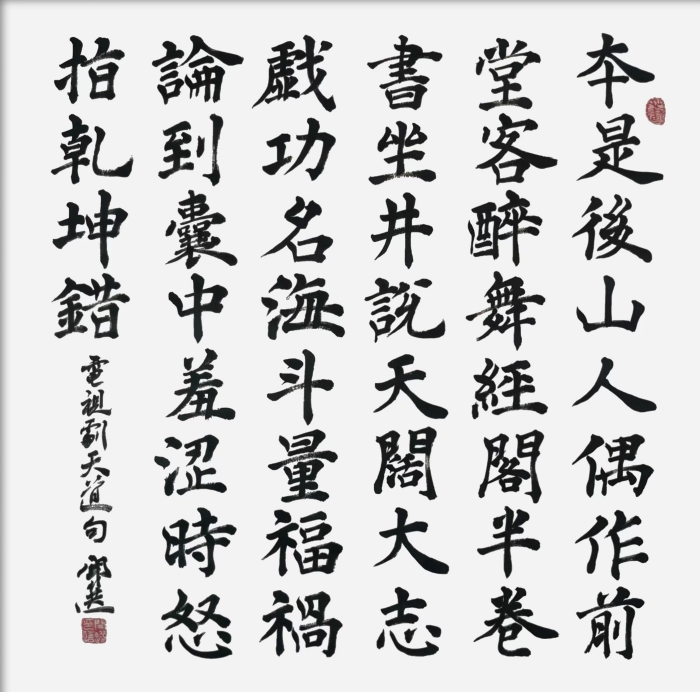 本是後山人偶作前
堂客醉舞經閣半卷
書坐井說天闊大志
戲功名海斗量福禍
論到囊中羞澀時怒
指乾坤錯
電視劇天道句